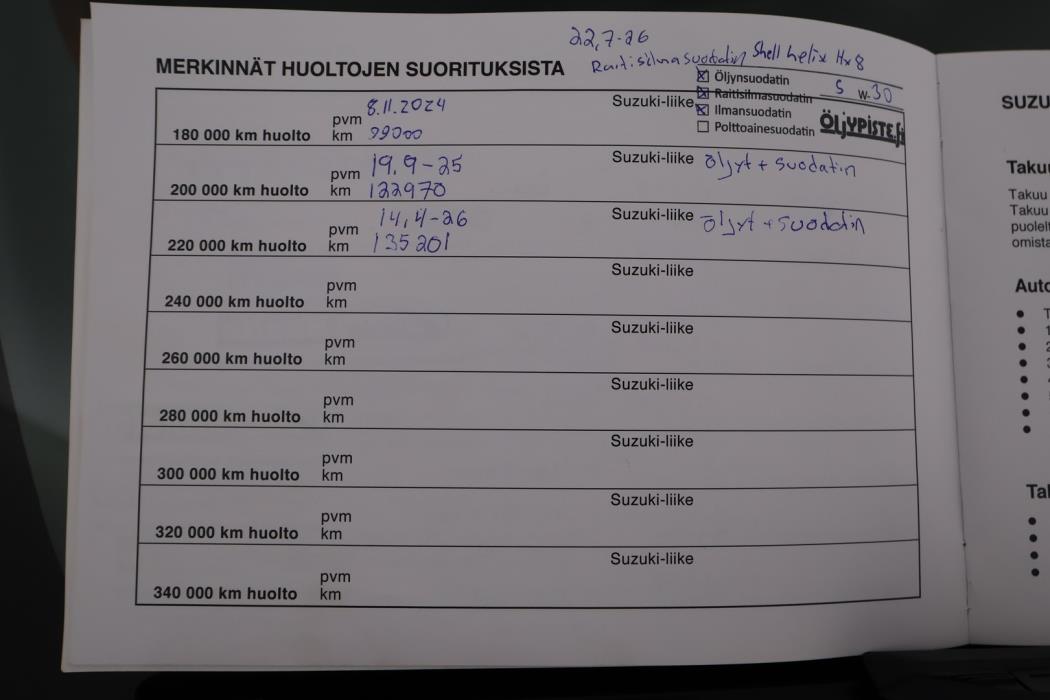 22,7-26
Raitisilmasuodatin Shell helix Hx8
MERKINNÄT HUOLTOJEN SUORITUKSISTA
180 000 km huolto
pvm 8.11.2024
km 99000
Suzuki-liike
Öljynsuodatin
Raitisilmasuodatin
Ilmansuodatin
Polttoainesuodatin
5 W-30
ÖLJYPISTE.fi
200 000 km huolto
pvm 19.9-25
km 122970
Suzuki-liike öljyt + suodatin
220 000 km huolto
pvm 14,4-26
km 135201
Suzuki-liike öljyt + suodatin
240 000 km huolto
pvm
km
Suzuki-liike
260 000 km huolto
pvm
km
Suzuki-liike
280 000 km huolto
pvm
km
Suzuki-liike
300 000 km huolto
pvm
km
Suzuki-liike
320 000 km huolto
pvm
km
Suzuki-liike
340 000 km huolto
pvm
km
Suzuki-liike
SUZU
Takuu
Takuu
Takuu
puolelt
omista
Auto
Tak